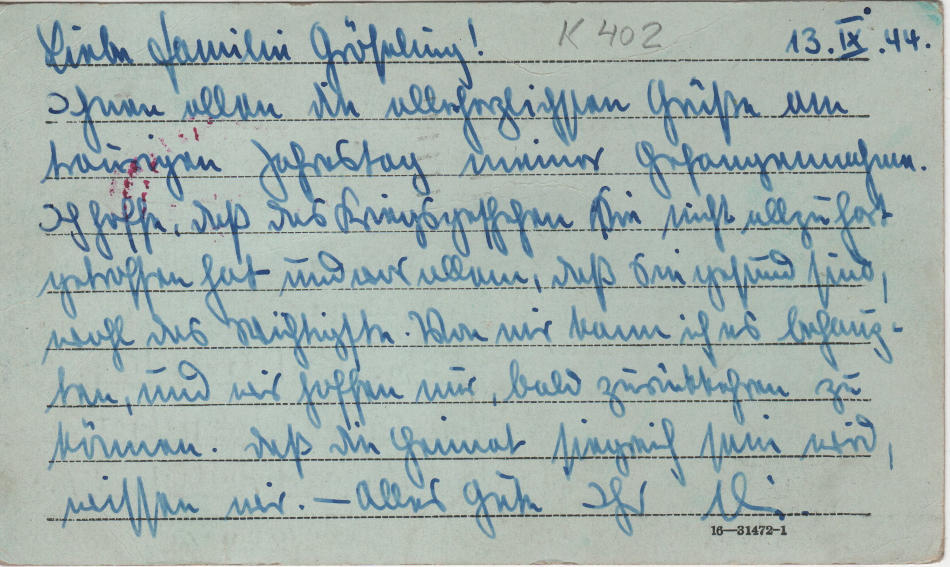 Liebe Familie Gröhling! K 402 13.IX.44.
Ihnen allen die allerherzlichsten Grüße am
traurigen Jahrestag meiner Gefangennahme.
Ich hoffe, daß das Kriegsgeschehen Sie nicht allzu hart
getroffen hat und vor allem, daß Sie gesund sind,
wohl das Wichtigste. Von mir kann ich es behaup-
ten, und wir hoffen nur, bald zurückkehren zu
können. Daß die Heimat siegreich sein wird,
wissen wir. — Alles Gute Ihr
16—31472-1